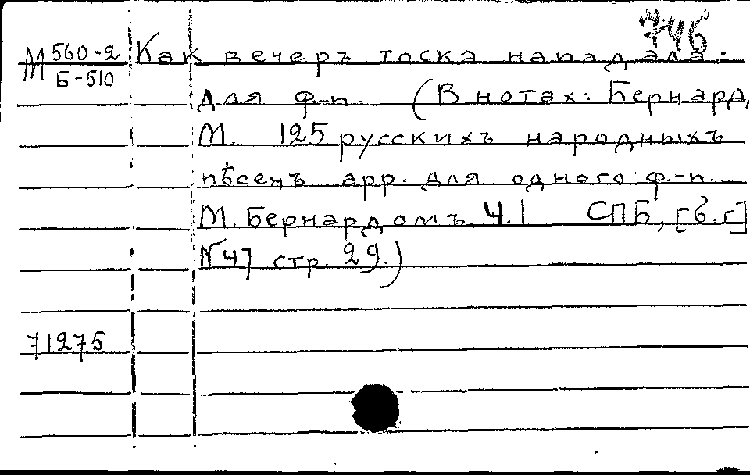 746
М 560-2 Какъ вечеръ тоска нападала.
Б-510
для ф-п. (В нотах: Бернард,
М. 125 русскихъ народныхъ
пѣсенъ арр. для одного ф-п.
М. Бернардомъ Ч.I СПБ, [б.г]
№47 стр. 29.)
71275